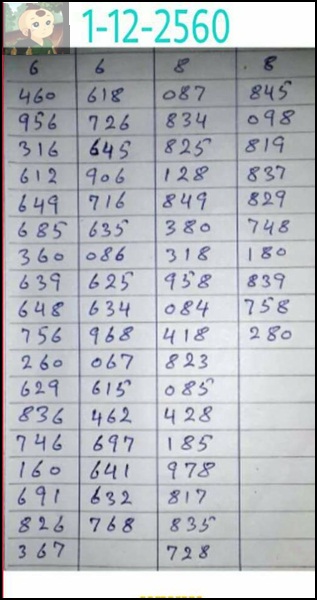 1-12-2560
6 6 8 8
460 618 087 845
956 726 834 098
316 645 825 819
612 906 128 837
649 716 849 829
685 635 380 748
360 086 318 180
639 625 958 839
648 634 084 758
756 968 418 280
260 067 823
629 615 085
836 462 428
746 697 185
160 641 978
691 632 817
826 768 835
367 728